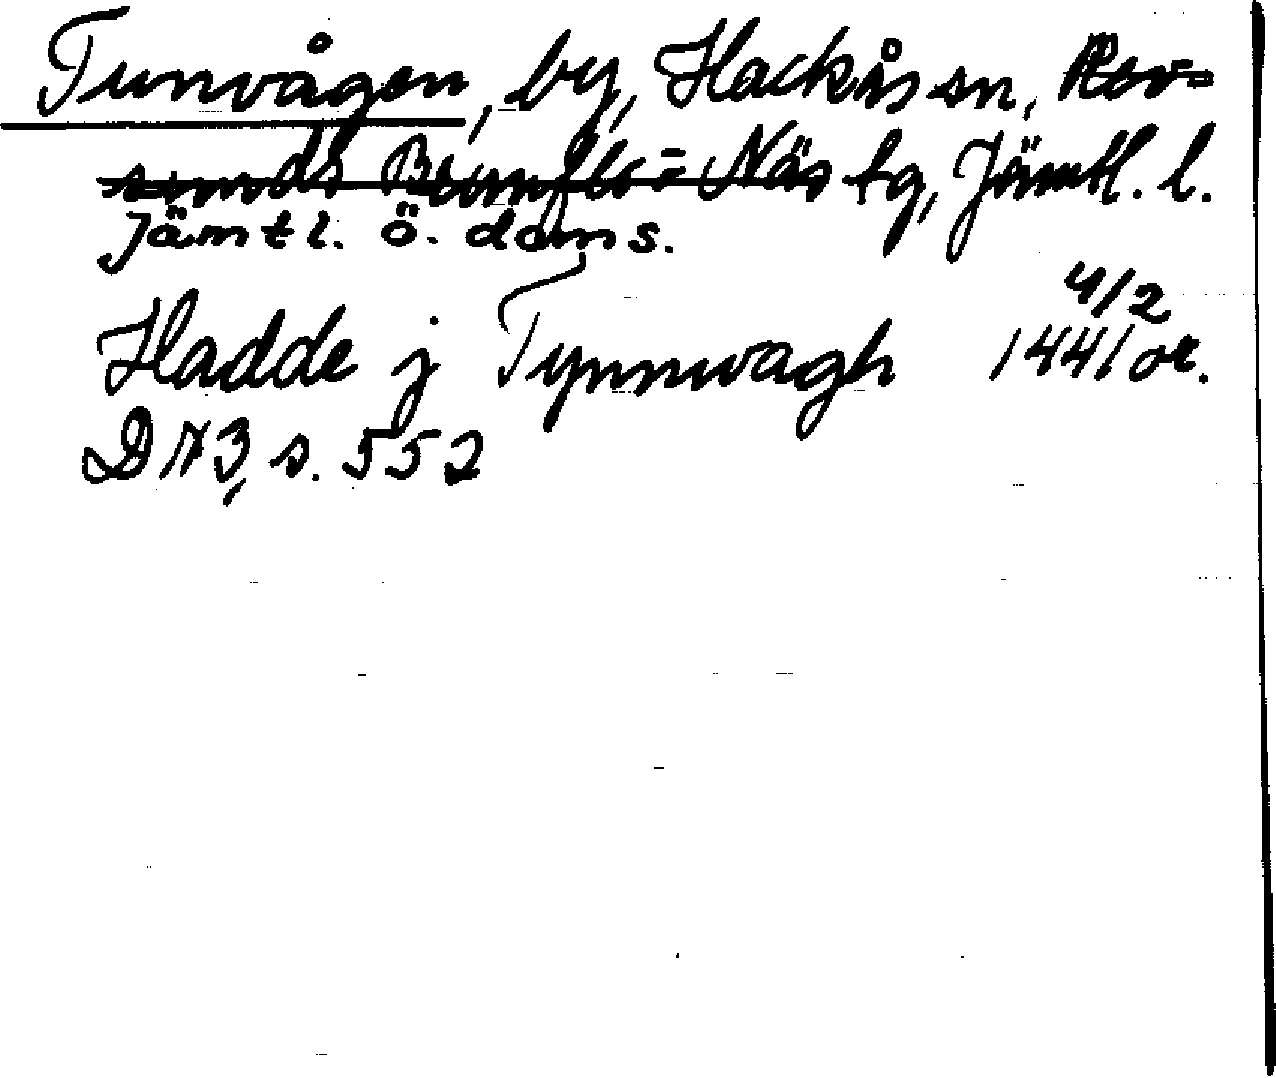 Tunvågen, by, Hackås sn, Rev-
sunds Brunflo = Näs tg, Jämtl. l.
Jämtl. ö. doms.
Hadde j Tynnwagh 4/2 1441 or.
DN3, s. 552